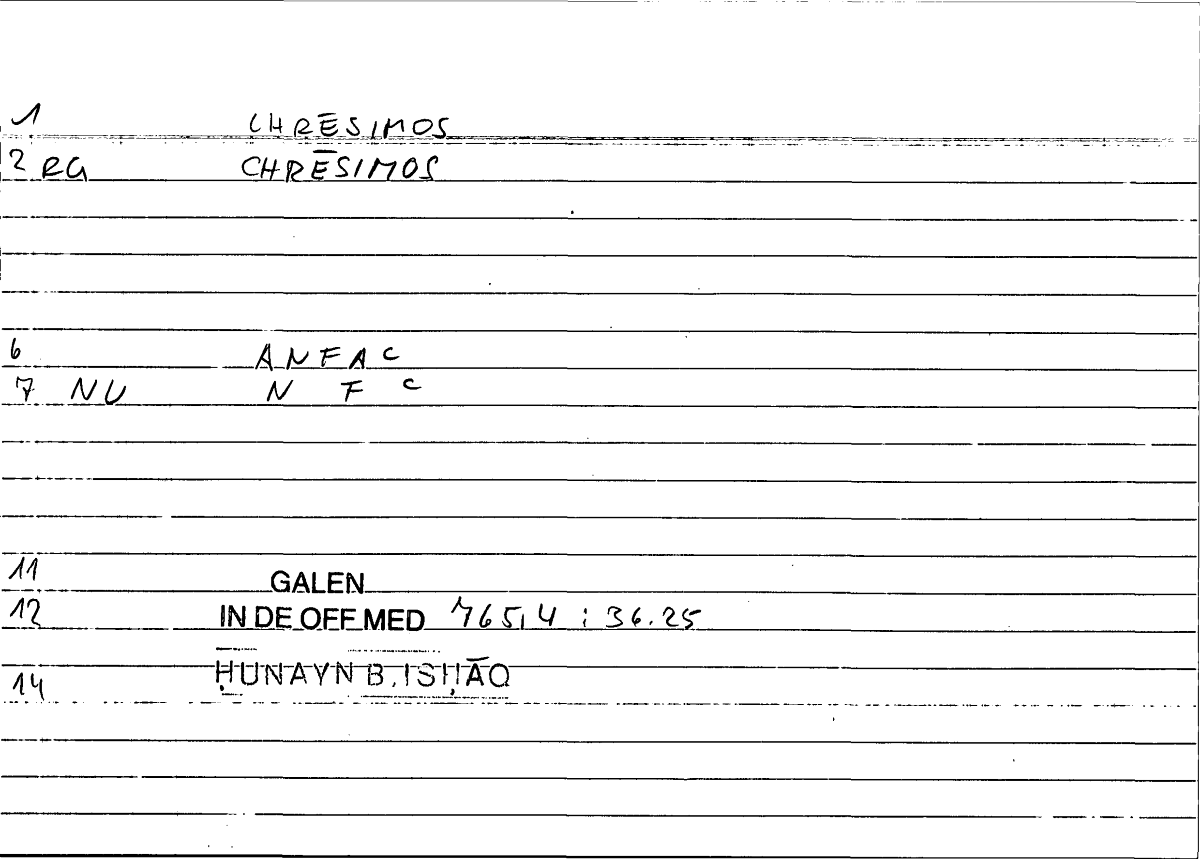 1 CHRĒSIMOS
2 RG CHRĒSIMOS
6 ANFAC
7 NU N F C
11 GALEN
12 IN DE OFF MED 765,4 : 36.25
14 ḤUNAYN B. ISḤĀQ